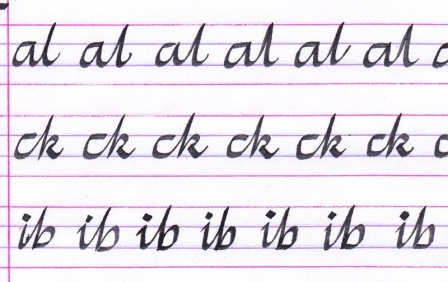 al al al al al al
ck ck ck ck ck ck c
ib ib ib ib ib ib ib